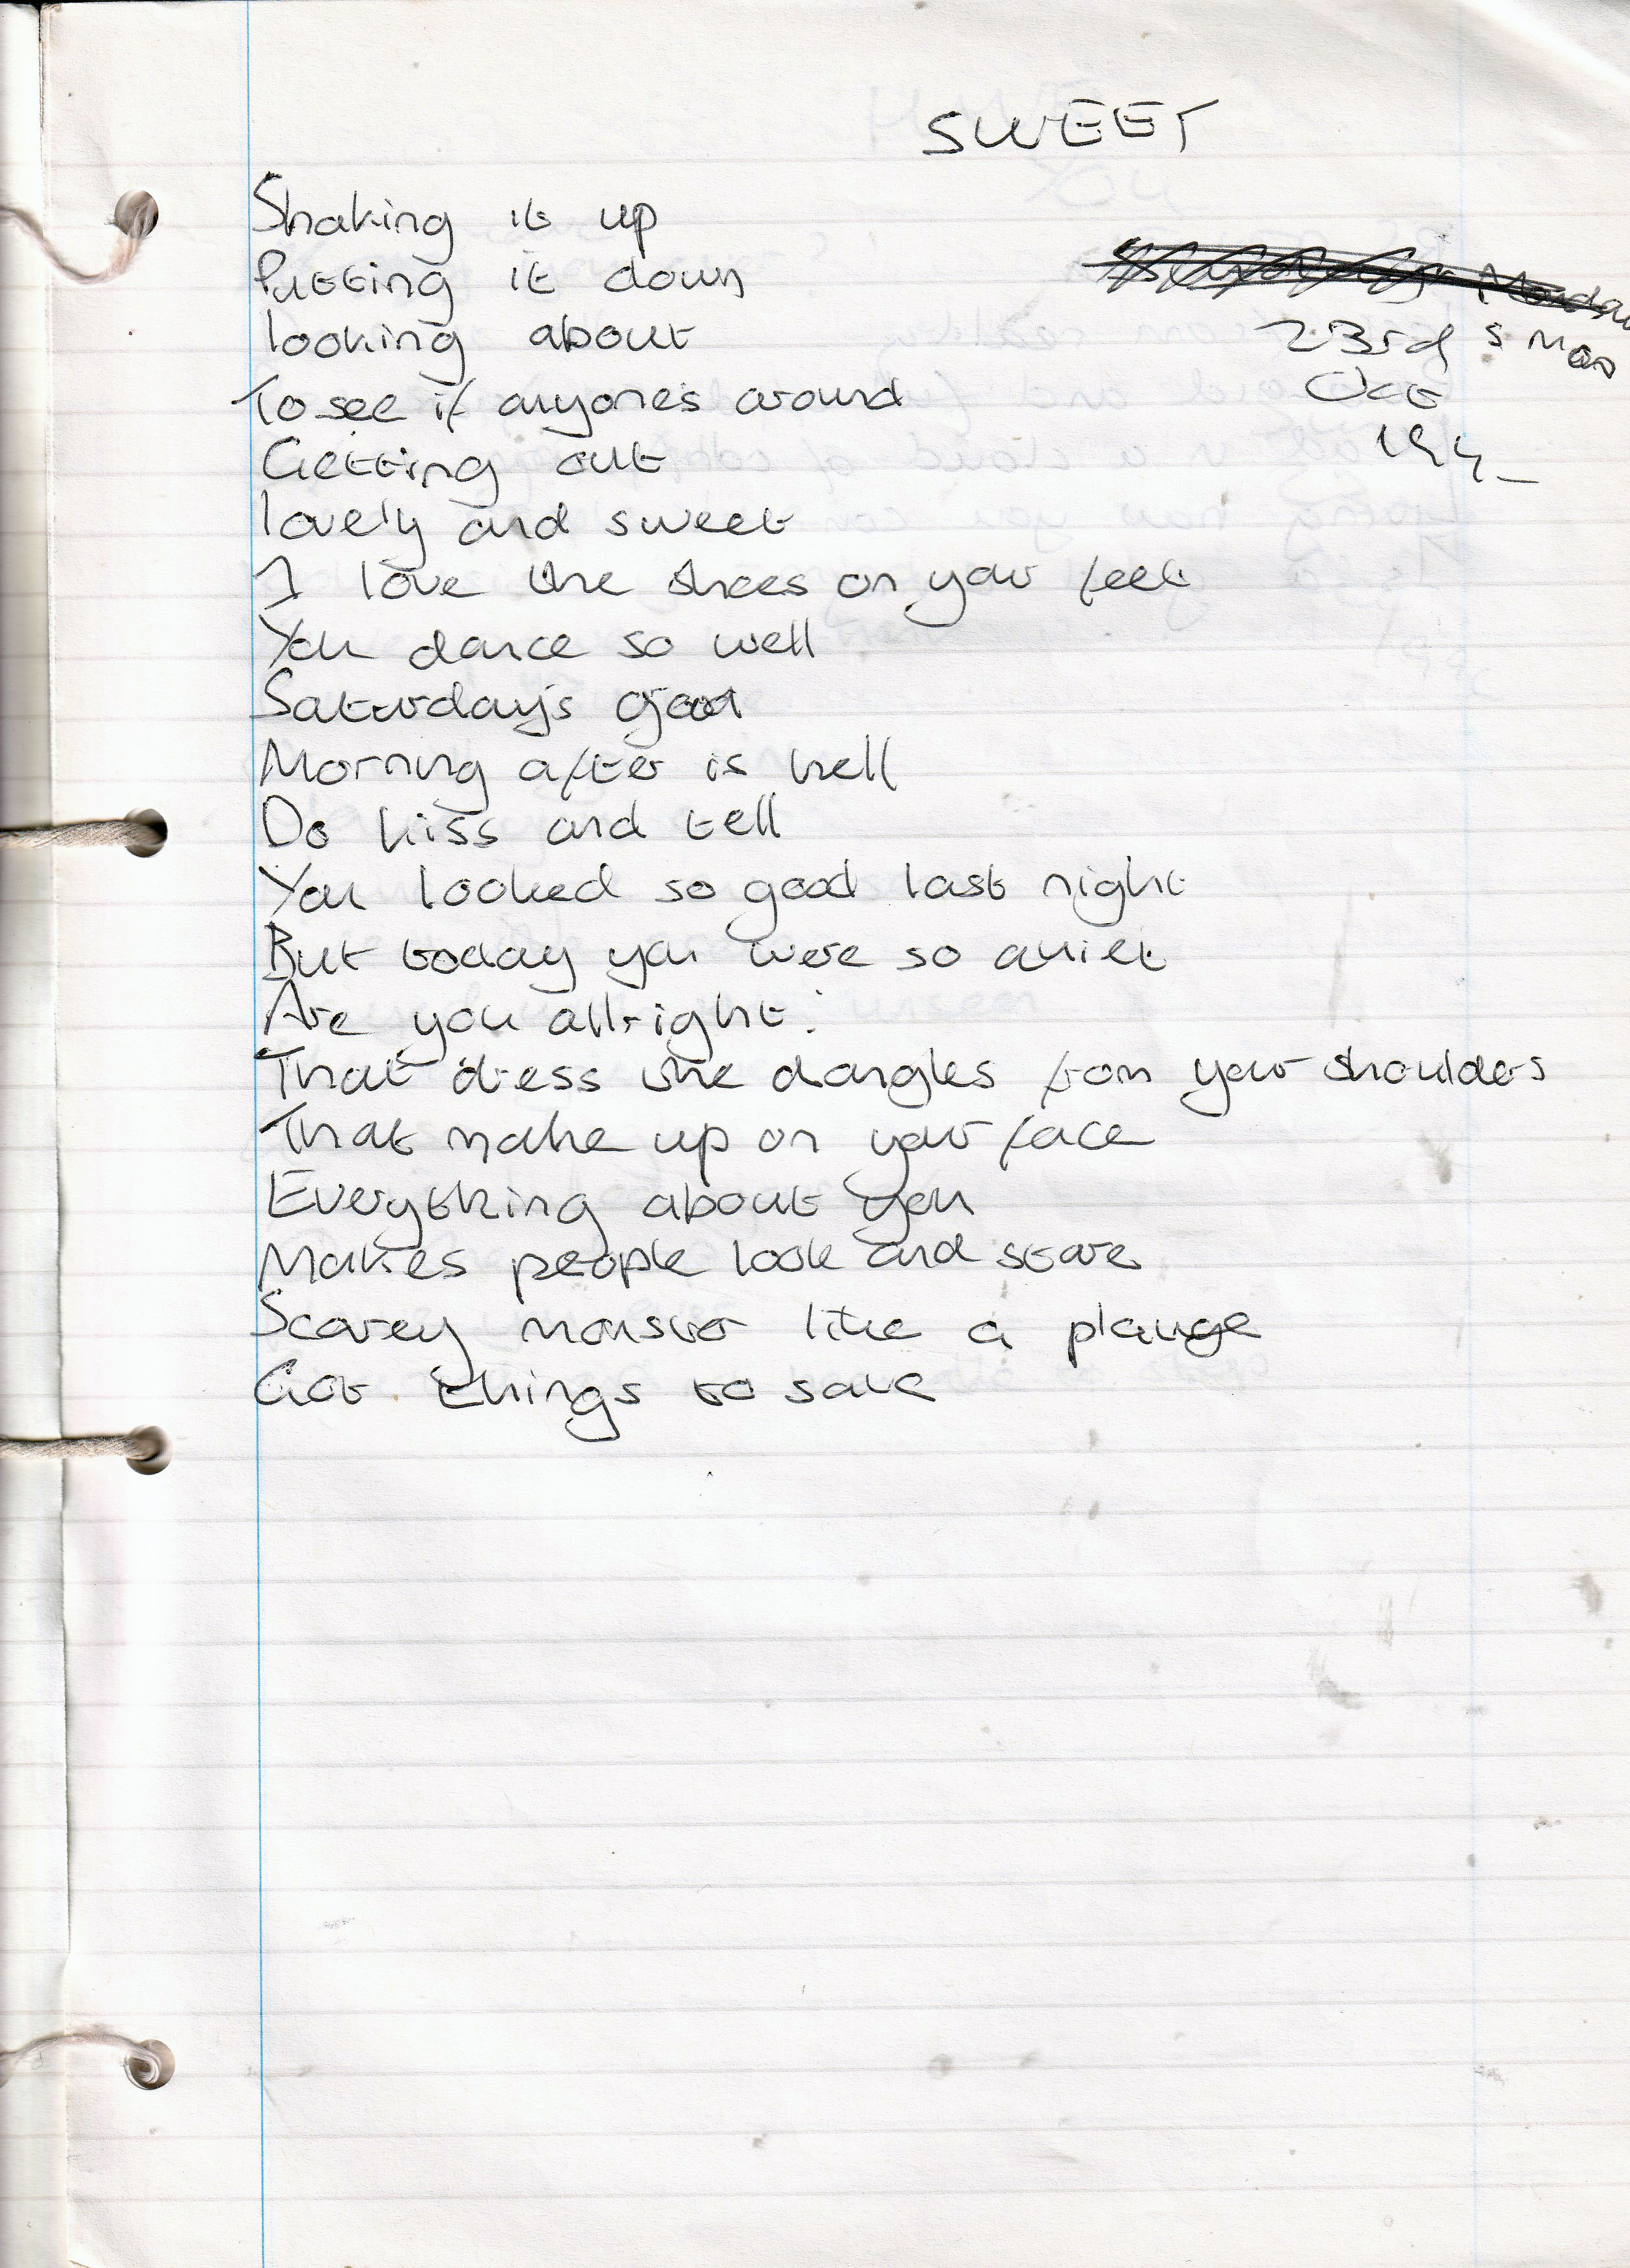 SWEET
Shaking it up
Putting it down
looking about
To see if anyones around
Getting out
lovely and sweet
I love the shoes on your feet
You dance so well
Saturday's good
Morning after is hell
Do kiss and tell
You looked so good last night
But today you were so quiet
Are you allright?
That dress she dangles from your shoulders
That make up on your face
Everything about you
Makes people look and stare
Scarey monster like a plauge
Got things to save
23rd
Oct